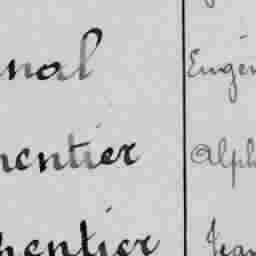 nal Eugèn
hentier Alph
hentier Jean